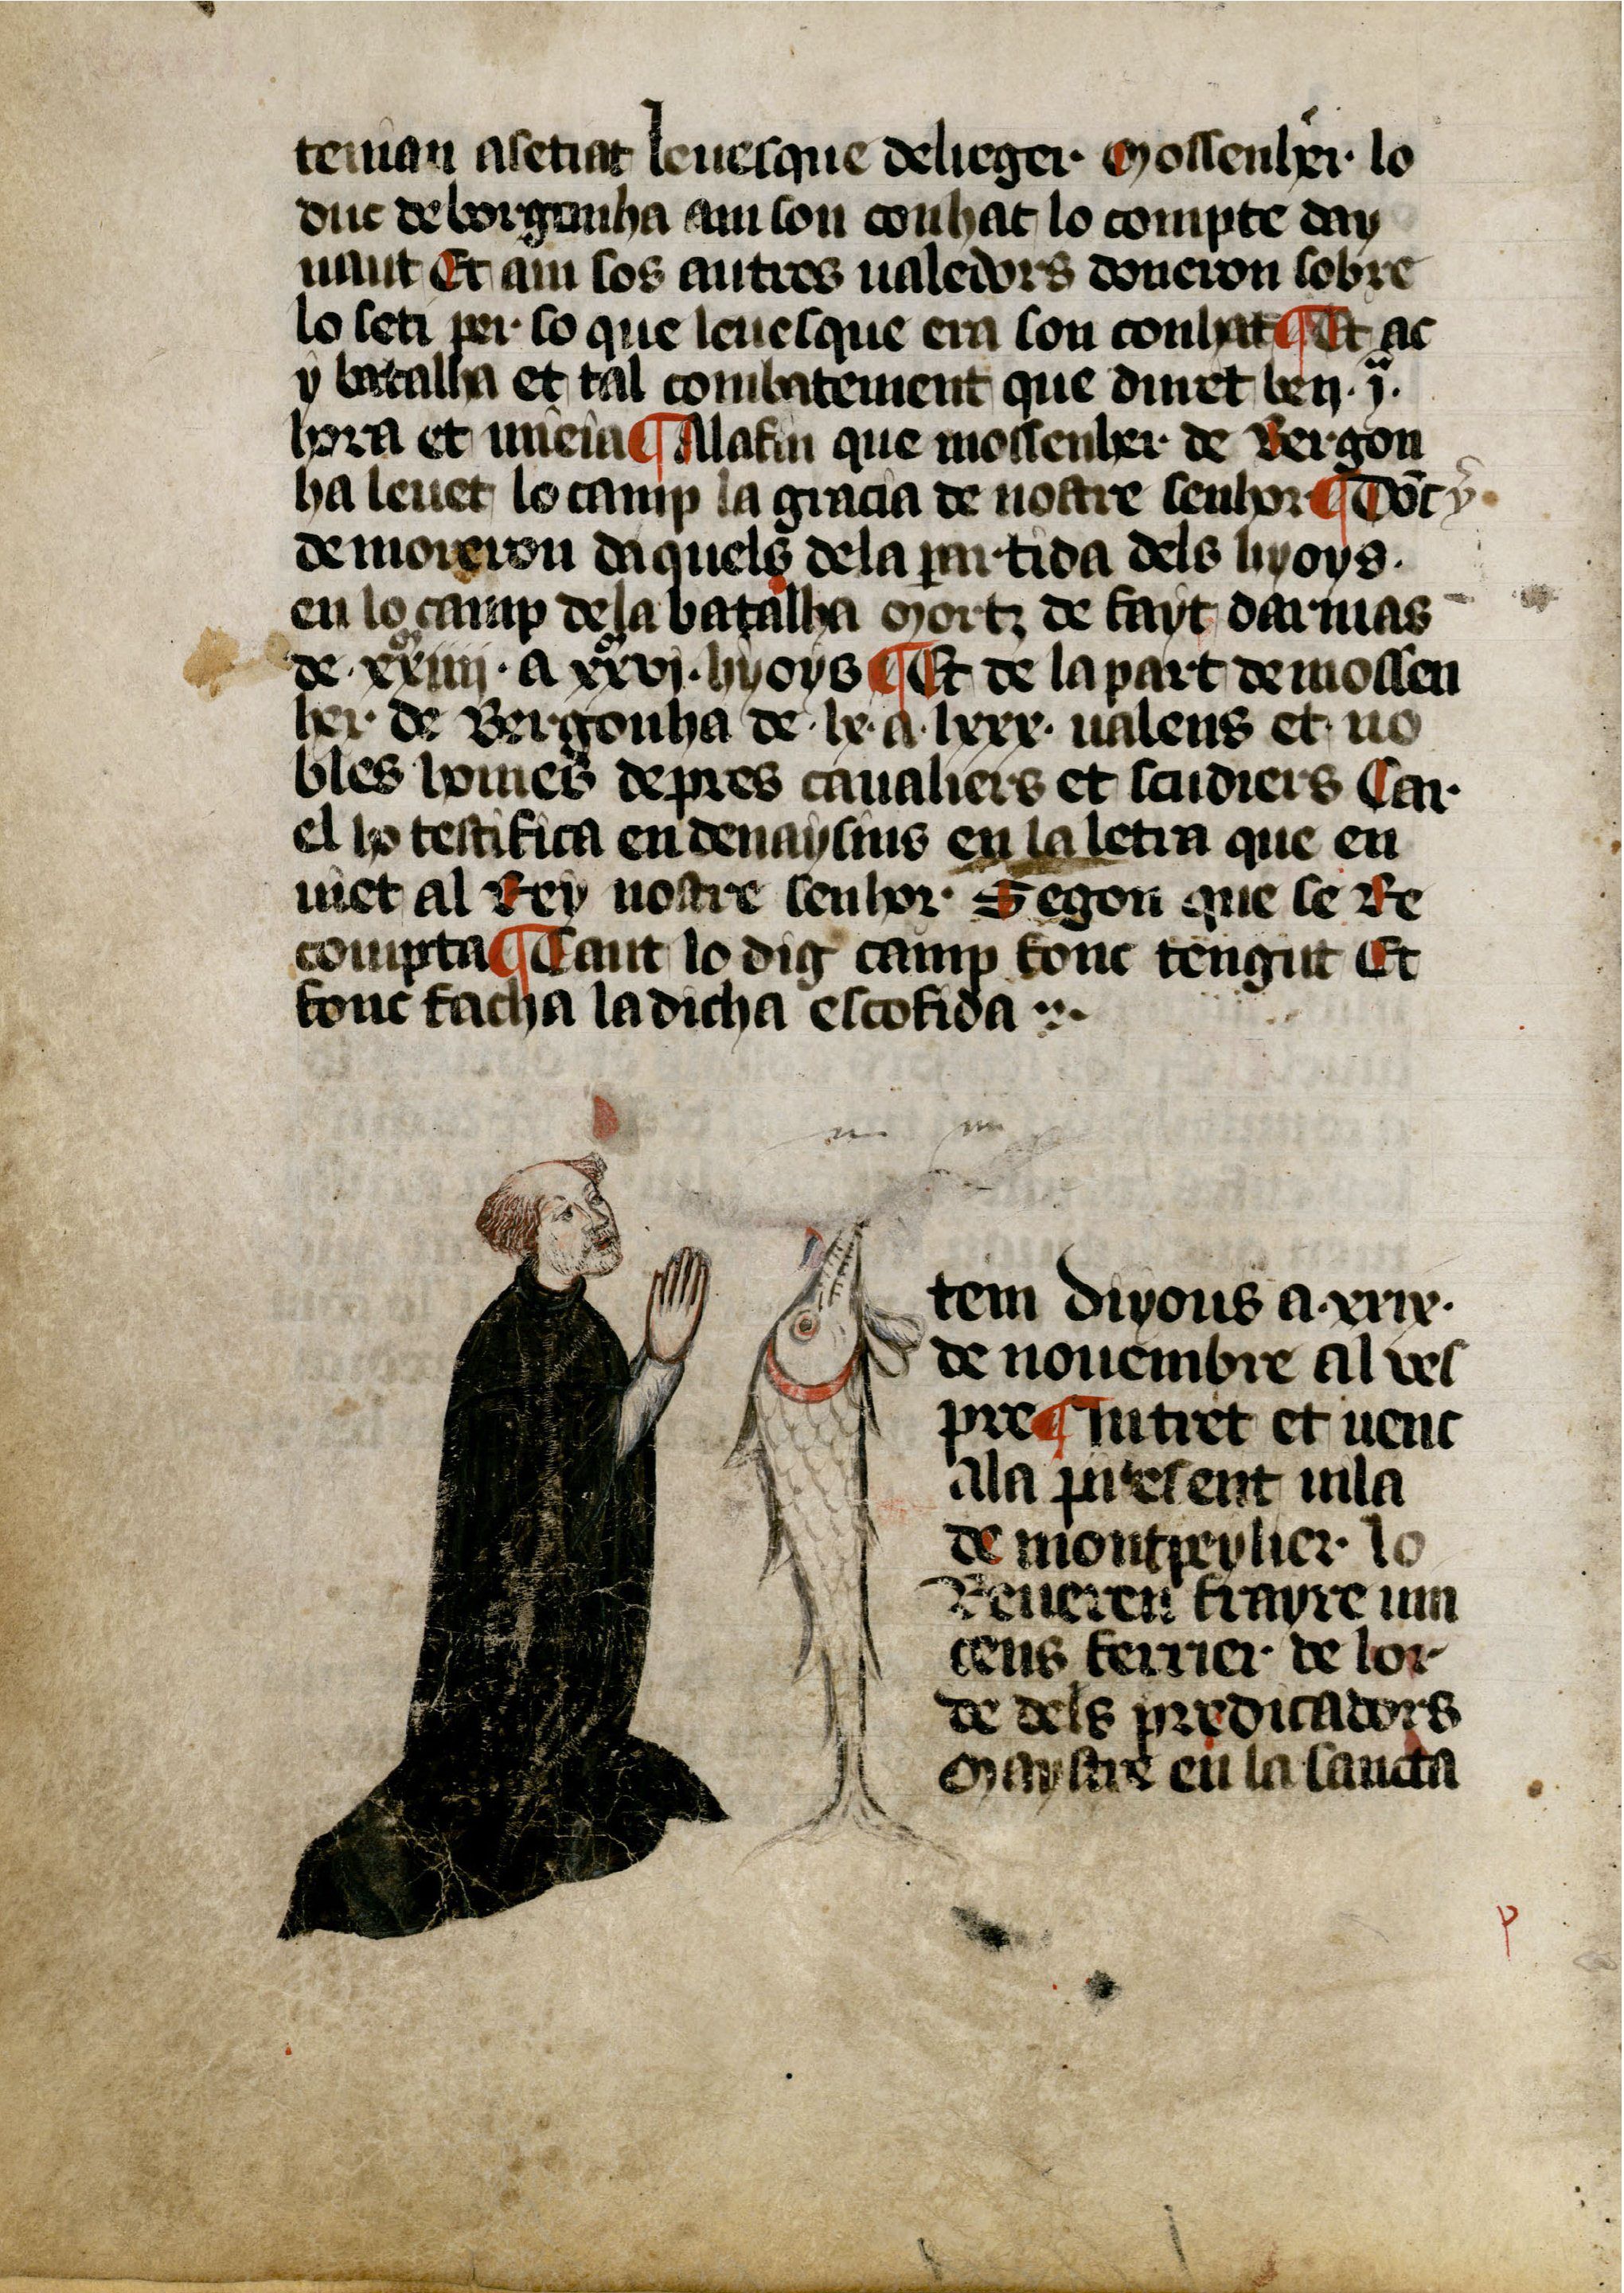 tenian asetiat levesque delieger. Mossenher. lo
duc de borgonha am son conhat lo compte day
naut Et am sos autres valedors doneron sobre
lo seti per so que levesque era son conhat ¶ Et ac
y batalha et tal combatement que duret ben .jª.
hora et mieia ¶ Alafin que mossenher de Bergon
ha levet lo camp la gracia de nostre senhor ¶ Dōt y
demoreron daquels dela partida dels liyoys.
en lo camp dela batalha Mortz de fayt darmas
de .xxiiii.ᵐ a xxvi.ᵐ liyoys ¶ Et de la part de mossen
her de Bergonha de .lx. a .lxxx. valens et no
bles homes de pres cavaliers et scudiers Car.
el ho testifica en denaysins en la letra que en
viet al Rey nostre senhor. Segon que se Re
compta ¶ Tant lo dig camp fonc tengut Et
fonc facha la dicha escofida
tem diyous a .xxix.
de novembre al ves
pre ¶ Intret et venc
ala present vila
de montpeylier lo
Reveren frayre vin
cens ferrier de lor
de dels predicadors
Maystre en la sancta